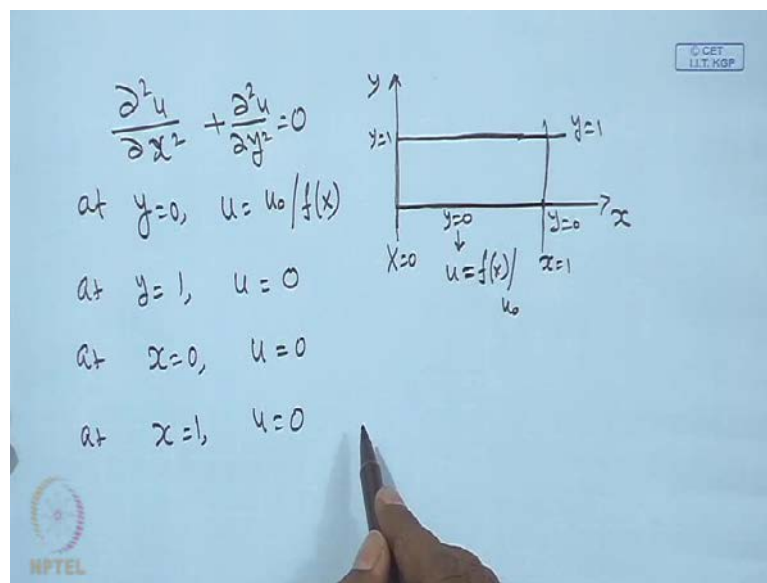 © CET
I.I.T. KGP
∂²u/∂x² + ∂²u/∂y² = 0
at y=0, u = u₀/f(x)
at y=1, u=0
at x=0, u=0
at x=1, u=0
y
y=1 y=1
y=0 y=0 x
x=0 u=f(x)/u₀ x=1
NPTEL